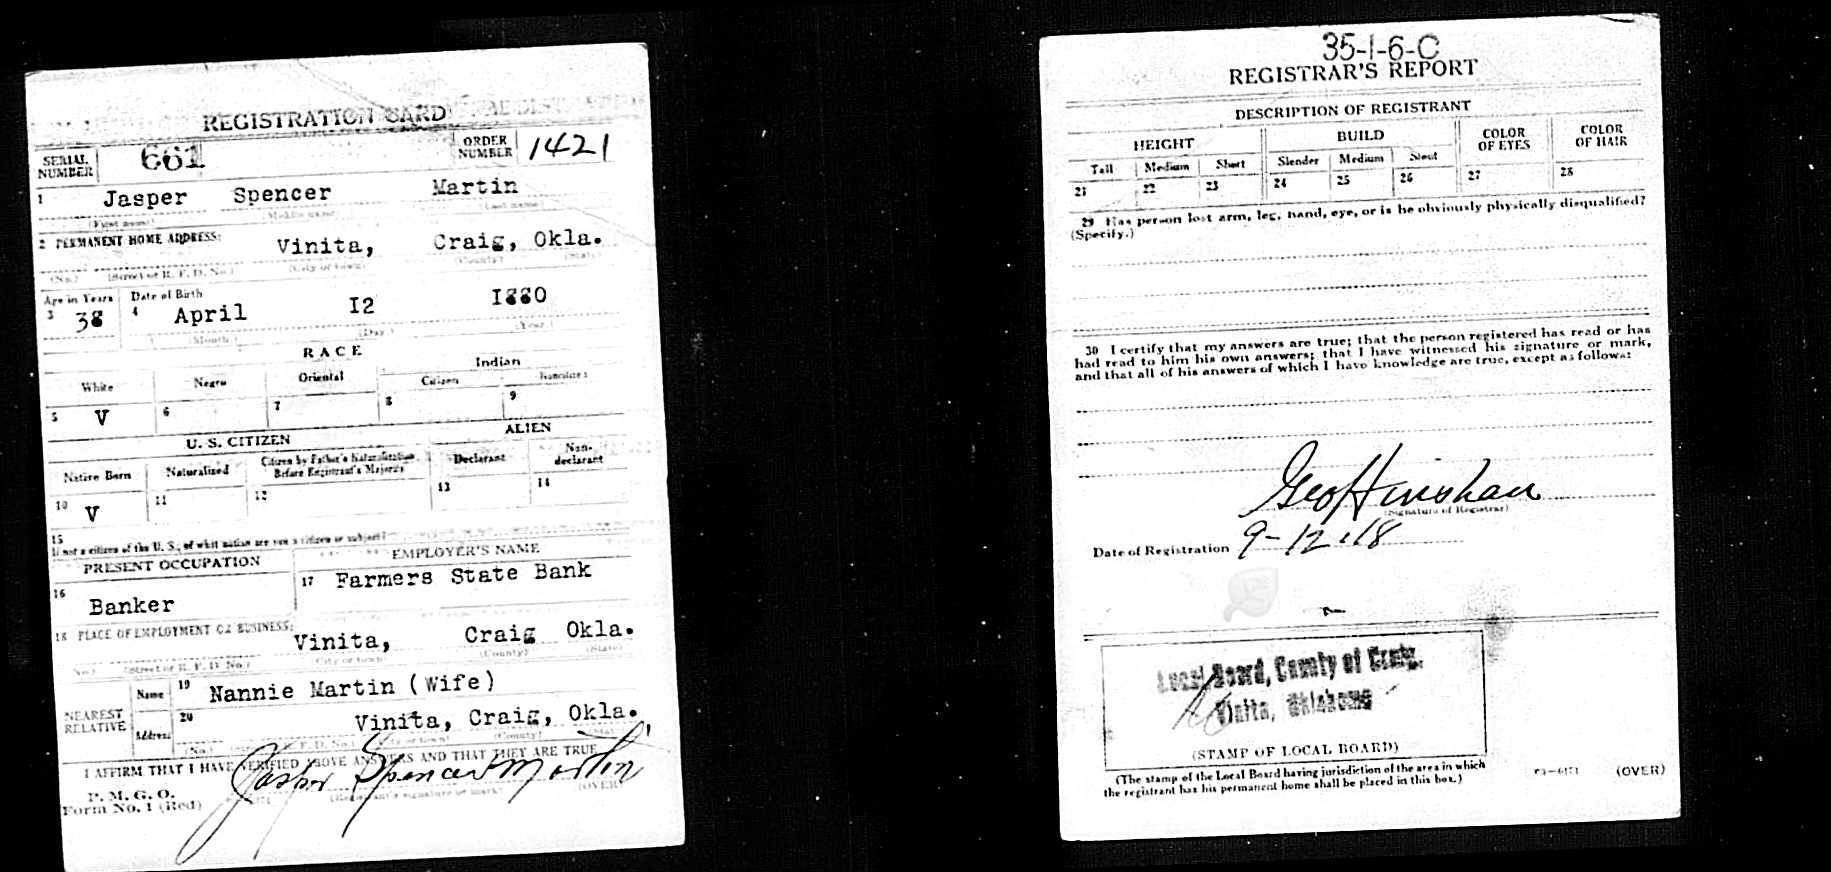 REGISTRATION CARD
SERIAL NUMBER 661 ORDER NUMBER 1421
1 Jasper Spencer Martin
(First name) (Middle name) (Last name)
2 PERMANENT HOME ADDRESS: Vinita, Craig, Okla.
(No.) (Street or R. F. D. No.) (City or town) (County) (State)
Age in Years Date of Birth
3 38 4 April 12 1880
(Month.) (Day.) (Year.)
RACE
White Negro Oriental Indian
Citizen Noncitizen
5 V 6 7 8 9
U. S. CITIZEN ALIEN
Native Born Naturalized Citizen by Father's Naturalization Before Registrant's Majority Declarant Non-declarant
10 V 11 12 13 14
15 If not a citizen of the U. S., of what nation are you a citizen or subject?
PRESENT OCCUPATION EMPLOYER'S NAME
16 Banker 17 Farmers State Bank
18 PLACE OF EMPLOYMENT OR BUSINESS: Vinita, Craig Okla.
(No.) (Street or R. F. D. No.) (City or town) (County) (State)
NEAREST RELATIVE Name 19 Nannie Martin (Wife)
Address 20 Vinita, Craig, Okla.
(No.) (Street or R. F. D. No.) (City or town) (County) (State)
I AFFIRM THAT I HAVE VERIFIED ABOVE ANSWERS AND THAT THEY ARE TRUE
P. M. G. O.
Form No. 1 (Red) Jasper Spencer Martin
(Registrant's signature or mark) (OVER)
35-1-6-C
REGISTRAR'S REPORT
DESCRIPTION OF REGISTRANT
HEIGHT BUILD COLOR OF EYES COLOR OF HAIR
Tall Medium Short Slender Medium Stout
21 22 23 24 25 26 27 28
29 Has person lost arm, leg, hand, eye, or is he obviously physically disqualified?
(Specify.)
30 I certify that my answers are true; that the person registered has read or has
had read to him his own answers; that I have witnessed his signature or mark,
and that all of his answers of which I have knowledge are true, except as follows:
Geo Hinshaw
(Signature of Registrar)
Date of Registration 9-12-18
Local Board, County of Craig,
Vinita, Oklahoma
(STAMP OF LOCAL BOARD)
(The stamp of the Local Board having jurisdiction of the area in which
the registrant has his permanent home shall be placed in this box.)
03-6171 (OVER)